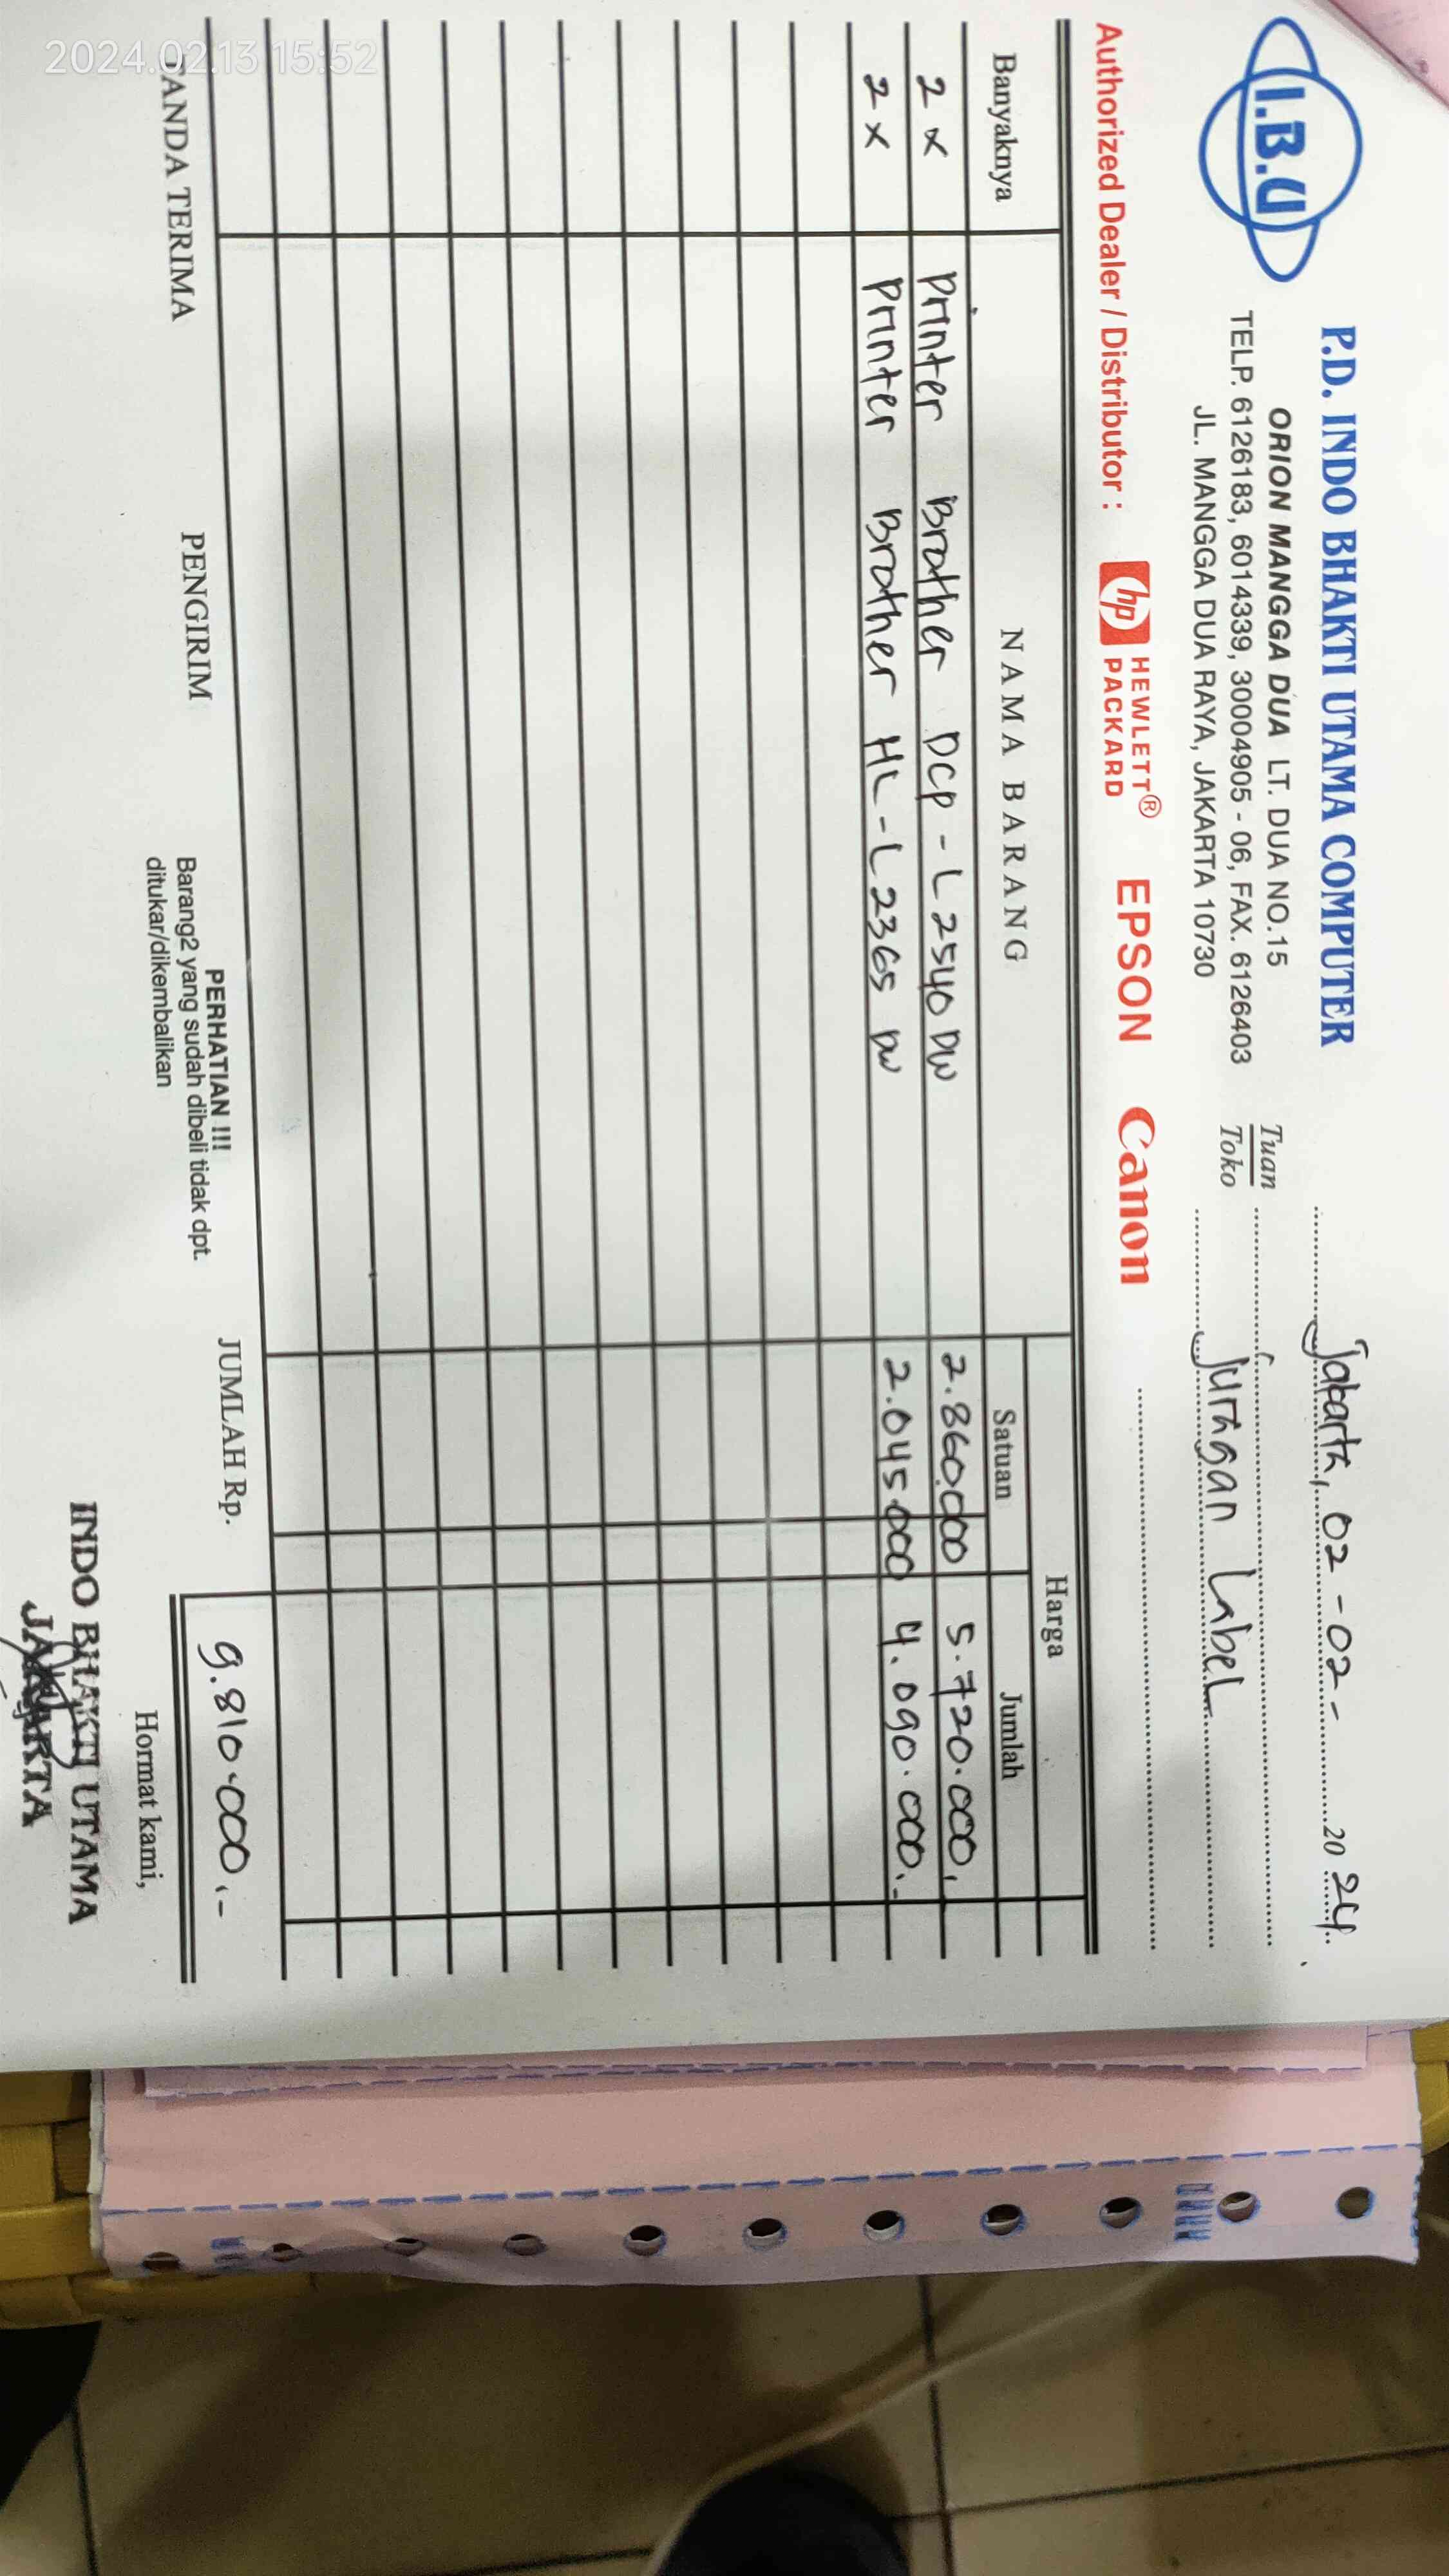 I.B.U
P.D. INDO BHAKTI UTAMA COMPUTER
ORION MANGGA DUA LT. DUA NO.15
TELP. 6126183, 6014339, 30004905 - 06, FAX. 6126403
JL. MANGGA DUA RAYA, JAKARTA 10730
Jakarta, 02 - 02 - 20 24
Tuan
Toko Juragan Label
Authorized Dealer / Distributor : hp HEWLETT® PACKARD EPSON Canon
Banyaknya NAMA BARANG Harga
Satuan Jumlah
2 x Printer Brother DCP - L 2540 DW 2.860.000 5.720.000,
2 x Printer Brother HL - L 2365 DW 2.045.000 4.090.000.-
TANDA TERIMA PENGIRIM PERHATIAN !!! JUMLAH Rp. 9.810.000,-
Barang2 yang sudah dibeli tidak dpt.
ditukar/dikembalikan
Hormat kami,
INDO BHAKTI UTAMA
JAKARTA
2024.02.13 15:52